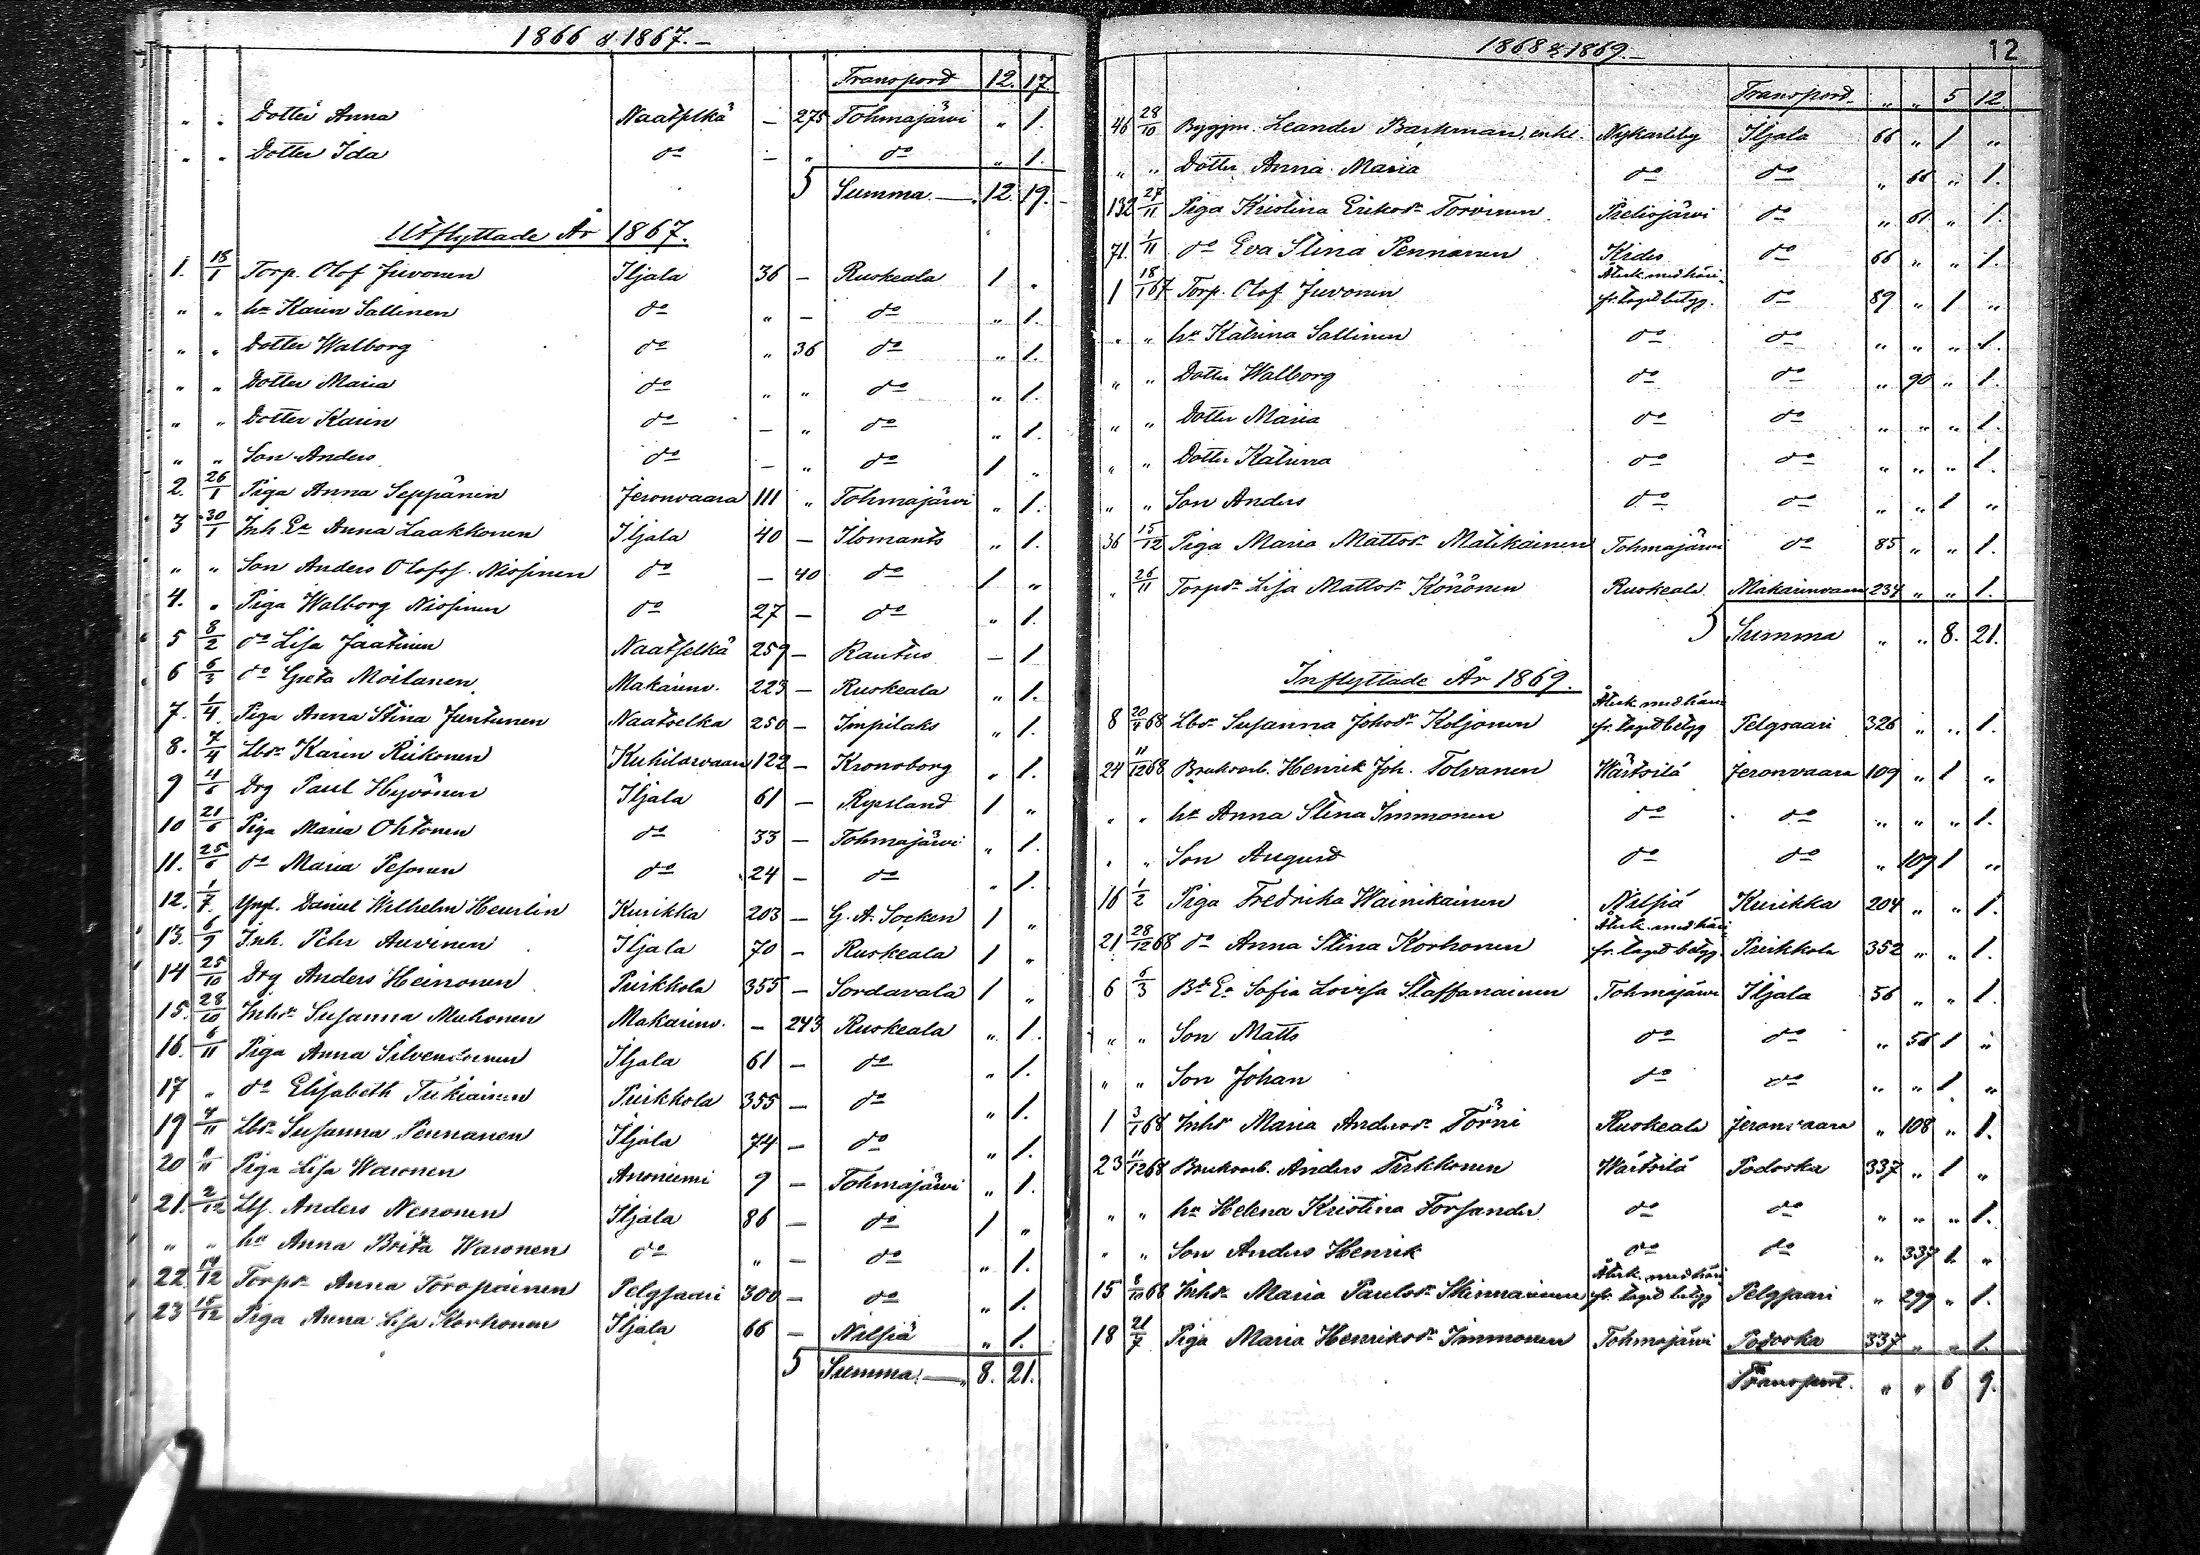 1866 & 1867.
Transport 12. 17.
" " Dotter Anna Naatselkä — 275 Tohmajärvi " 1.
" " Dotter Ida do — " do " 1.
5 Summa — 12. 19.
Utflyttade År 1867.
1. 18/1 Torp. Olof Juvonen Iljala 36 — Ruskeala 1 "
" " hu Karin Sallinen do " — do " 1.
" " Dotter Walborg do " 36 do " 1.
" " Dotter Maria do " " do " 1.
" " Dotter Karin do — " do " 1.
" " Son Anders do — " do 1 "
2. 26/1 Piga Anna Seppänin Jeronvaara 111 " Tohmajärvi " 1.
3 30/1 Inh. Ea Anna Laakkonen Iljala 40 — Ilomants " 1.
" " Son Anders Olofss. Nissinen do — 40 do 1 "
4. " Piga Walborg Nissinen do 27 — do " 1.
5 8/2 do Lisa Jaatinen Naatselkä 259 — Rautus — 1
6 6/3 do Greta Moilanen Makarinv. 223 — Ruskeala " 1.
7. 1/4 Piga Anna Stina Juntunen Naatselka 250 — Impilaks " 1.
8. 7/4 Lbdr Karin Riikonen Kuhilasvaara 122 — Kronoborg " 1.
9 4/6 Drg Paul Hyvönen Iljala 61 — Ryssland 1 "
10 21/6 Piga Maria Ohtonen do 33 — Tohmajärvi " 1.
11. 25/6 do Maria Pesonen do 24 — do " 1.
12. 1/7 Yngl. Daniel Wilhelm Heurlin Kurikka 203 — G. A. Socken 1 "
13. 6/9 Inh. Pehr Auvinen Iljala 70 — Ruskeala 1 "
14 25/10 Drg Anders Heinonen Puikkola 355 — Sordavala 1 "
15. 28/10 Inhdr Susanna Muhonen Makarinv. — 243 Ruskeala " 1.
16. 6/11 Piga Anna Silvendoinen Iljala 61 — do " 1.
17 " do Elisabeth Tukiainen Puikkola 355 — do " 1.
19 7/11 Lbdr Susanna Pennanen Iljala 74 — do " 1.
20 "/11 Piga Lisa Waronen Anoniemi 9 — Tohmajärvi " 1.
21. 2/12 Lbf. Anders Nenonen Iljala 86 — do 1 "
" " hu Anna Brita Waronen do " — do " 1.
22. 14/12 Torpdr Anna Toropainen Pelgsaari 300 — do " 1.
23 15/12 Piga Anna Lisa Korhonen Iljala 66 — Nilsiä " 1.
5 Summa — 8. 21.
1868 & 1869. 12
Transport. " " 5 12.
46 28/10 Byggm. Leander Backman, enkl. Nykarleby Iljala 66 " 1 "
" " Dotter Anna Maria do do " 66 " 1.
132 27/11 Piga Kristina Eriksdr Torvinen Pielisjärvi do " 61 " 1.
71. 1/11 do Eva Stina Pennanen Kides do 66 " " 1.
1 18/1 67 Torp. Olof Juvonen Återk. med härifr. taget betyg. do 89 " 1 "
" " hu Katrina Sallinen do do " " " 1.
" " Dotter Walborg do do " 90 " 1.
" " Dotter Maria do do " " " 1.
" " Dotter Katrina do do " " " 1.
" " Son Anders do do " " 1 "
36 15/12 Piga Maria Mattsdr Matikainen Tohmajärvi do 85 " " 1.
" 26/11 Torpdr Lisa Mattsdr Könönen Ruskeala Makarinvaara 234 " " 1.
5 Summa " " 8. 21.
Inflyttade År 1869.
8 20/4 68 Lbdr Susanna Johsdr Koljonen Återk. med härifr. taget betyg Pelgsaari 326 " " 1.
24 11/12 68 Bruksarb. Henrik Joh. Tolvanen Wärtsilä Jeronvaara 109 " 1 "
" " hu Anna Stina Immonen do do " " " 1.
" " Son August do do " 109 1 "
16 1/2 Piga Fredrika Wainikainen Nilsiä Kurikka 204 " " 1.
21 28/12 68 do Anna Stina Korhonen Återk. med härifr. taget betyg Puikkola 352 " " 1.
6 6/3 Bd Ea Sofia Lovisa Staffanainen Tohmajärvi Iljala 56 " " 1.
" " Son Matts do do " 56 1 "
" " Son Johan do do " " 1 "
1 3/1 68 Inhdr Maria Andersdr Törni Ruskeala Jeronvaara " 108 " 1.
23 11/12 68 Bruksarb. Anders Turkkonen Wärtsilä Podoska 337 " 1 "
" " hu Helena Kristina Forsander do do " " " 1.
" " Son Anders Henrik do do " 337 1. "
15 8/10 68 Inhdr Maria Paulsdr Skinnarinen Återk. med härifr. taget betyg Pelgsaari " 299 " 1.
18 21/7 Piga Maria Henriksdr Immonen Tohmajärvi Podoska 337 " " 1.
Transport. " " 6 9.